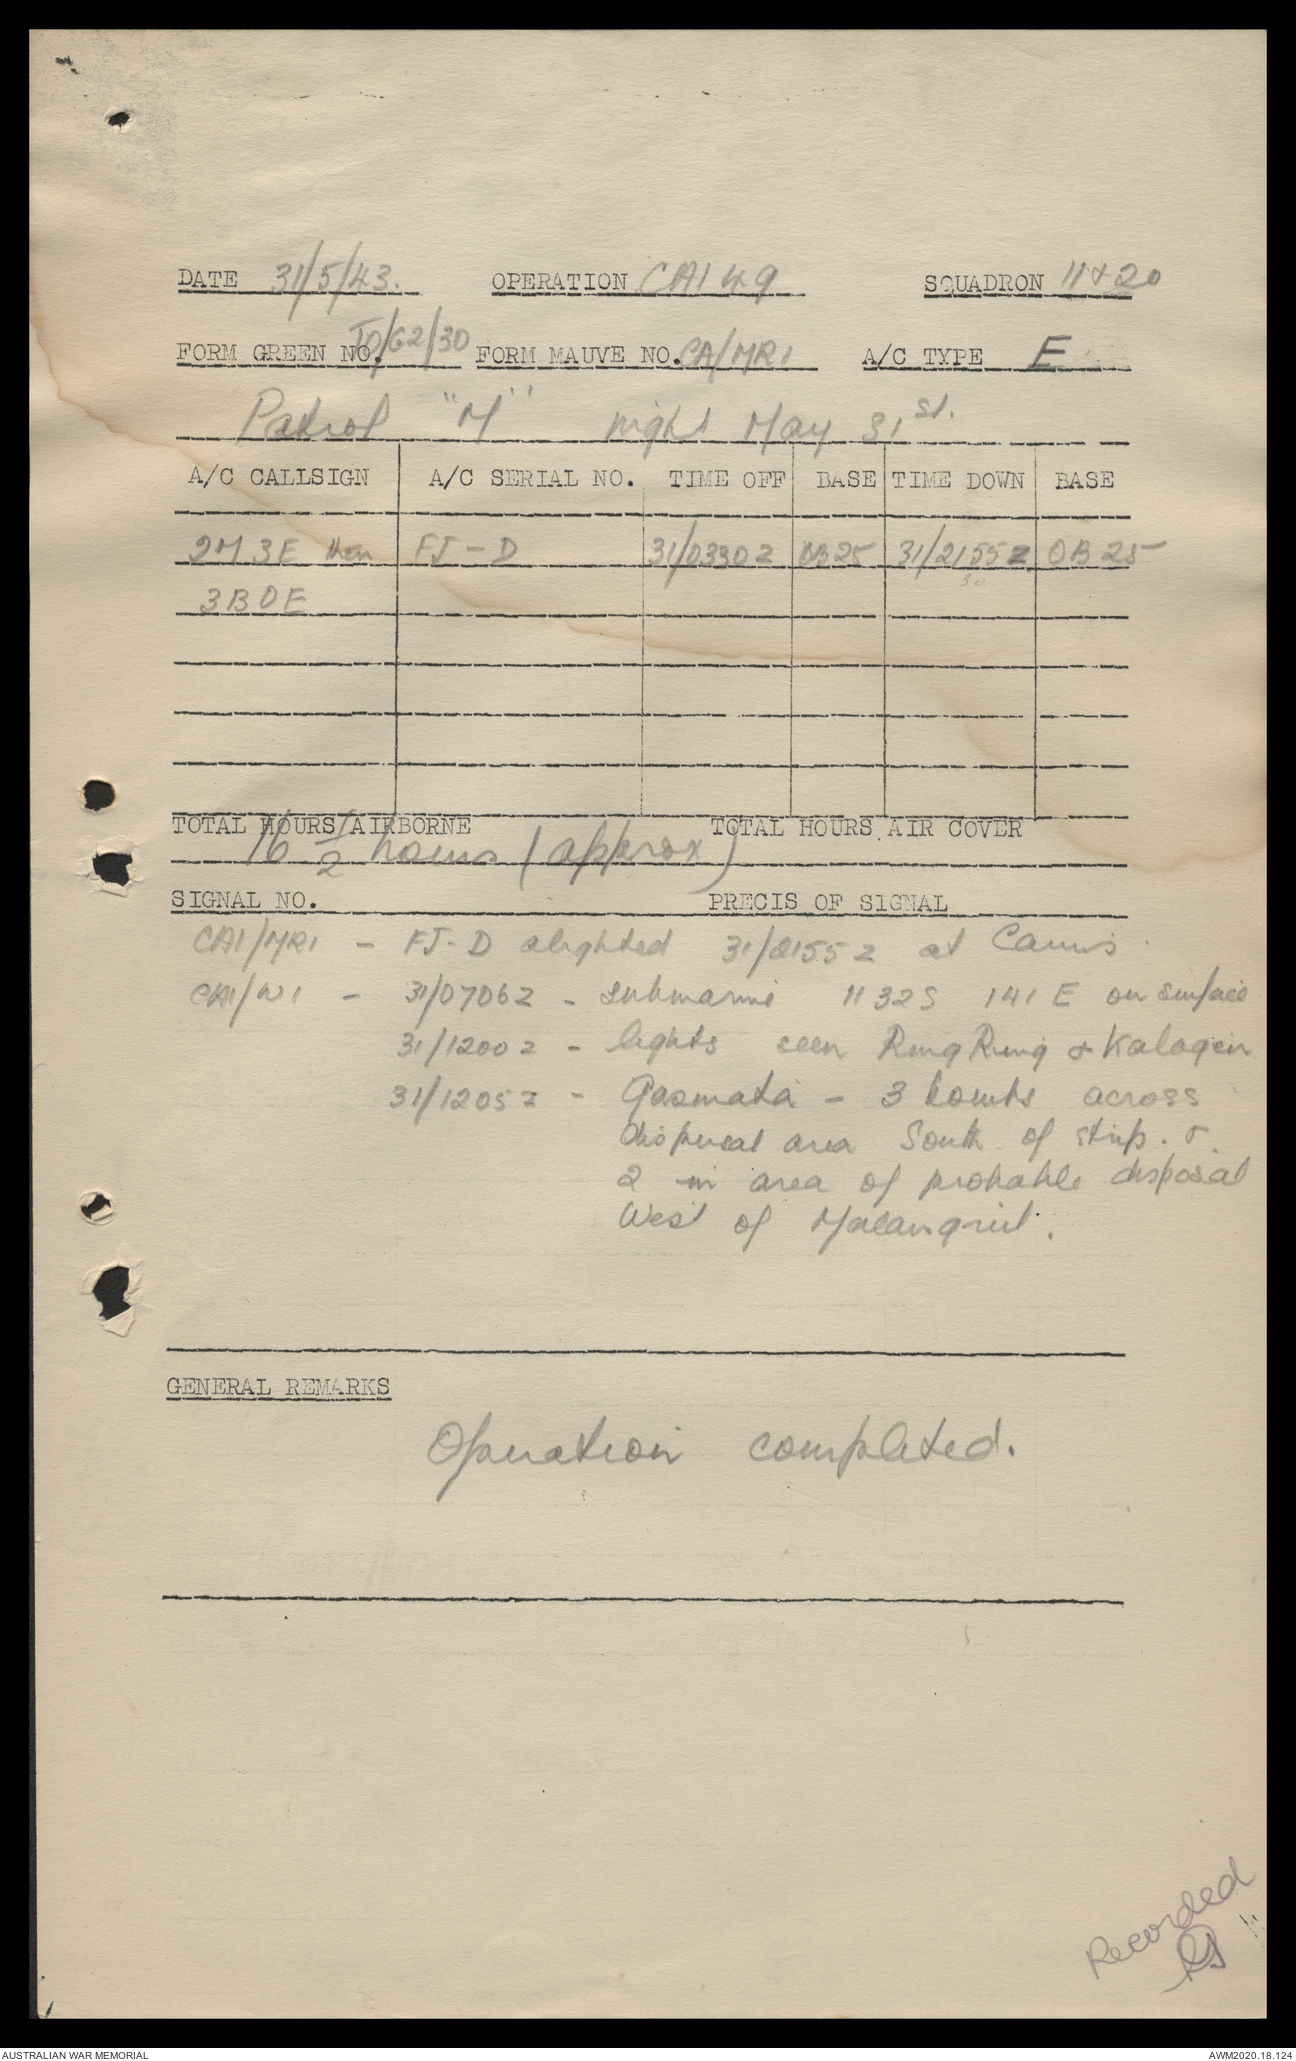 DATE 31/5/43. OPERATION CA1 49 SQUADRON 11 & 20
FORM GREEN NO. TO/G2/30 FORM MAUVE NO. CA/MR1 A/C TYPE E
Patrol "M" night May 31st.
A/C CALLSIGN A/C SERIAL NO. TIME OFF BASE TIME DOWN BASE
2M3E then FJ-D 31/0330Z OB25 31/2155Z OB25
30
3BDE
TOTAL HOURS AIRBORNE TOTAL HOURS AIR COVER
16 1/2 hours (approx)
SIGNAL NO. PRECIS OF SIGNAL
CA1/MR1 - FJ-D alighted 31/2155Z at Cairns
CA1/W1 - 31/0706Z - submarine 1132S 141E on surface
31/1200Z - lights seen Ring Ring & Kalagen
31/1205Z - Gasmata - 3 bombs across
dispersal area South of strip. &
2 in area of probable disposal
West of
GENERAL REMARKS
Operation completed.
Recorded
AUSTRALIAN WAR MEMORIAL AWM2020.18.124